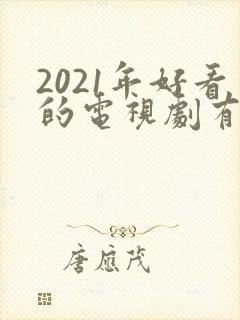 2021年好看
的電視劇有
唐應茂